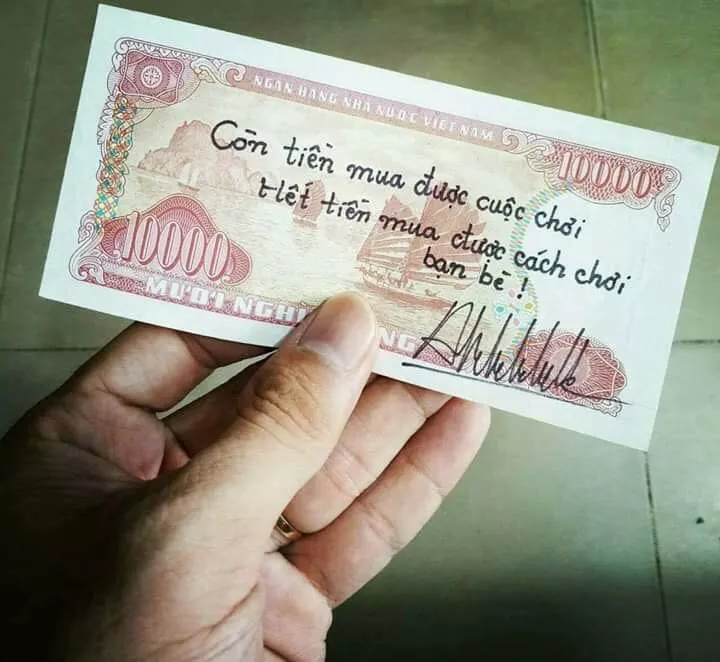 NGÂN HÀNG NHÀ NƯỚC VIỆT NAM
10000
Còn tiền mua được cuộc chơi
Hết tiền mua được cách chơi
bạn bè !
10000
MƯỜI NGHÌ NG